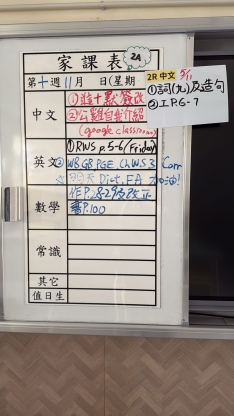 家課表 2A
第十週 11月 日(星期
中文 ①進十默簽改
②公雞自我介紹
(google classroom)
英文 ①RWS p.5-6 (Friday)
②WB GB PGE Ch WS 3
Dict. EA 加油!
數學 作P.28-29及改正
書P.100
常識
其它
值日生
2R 中文
①詞(九)及造句
②工P.6-7